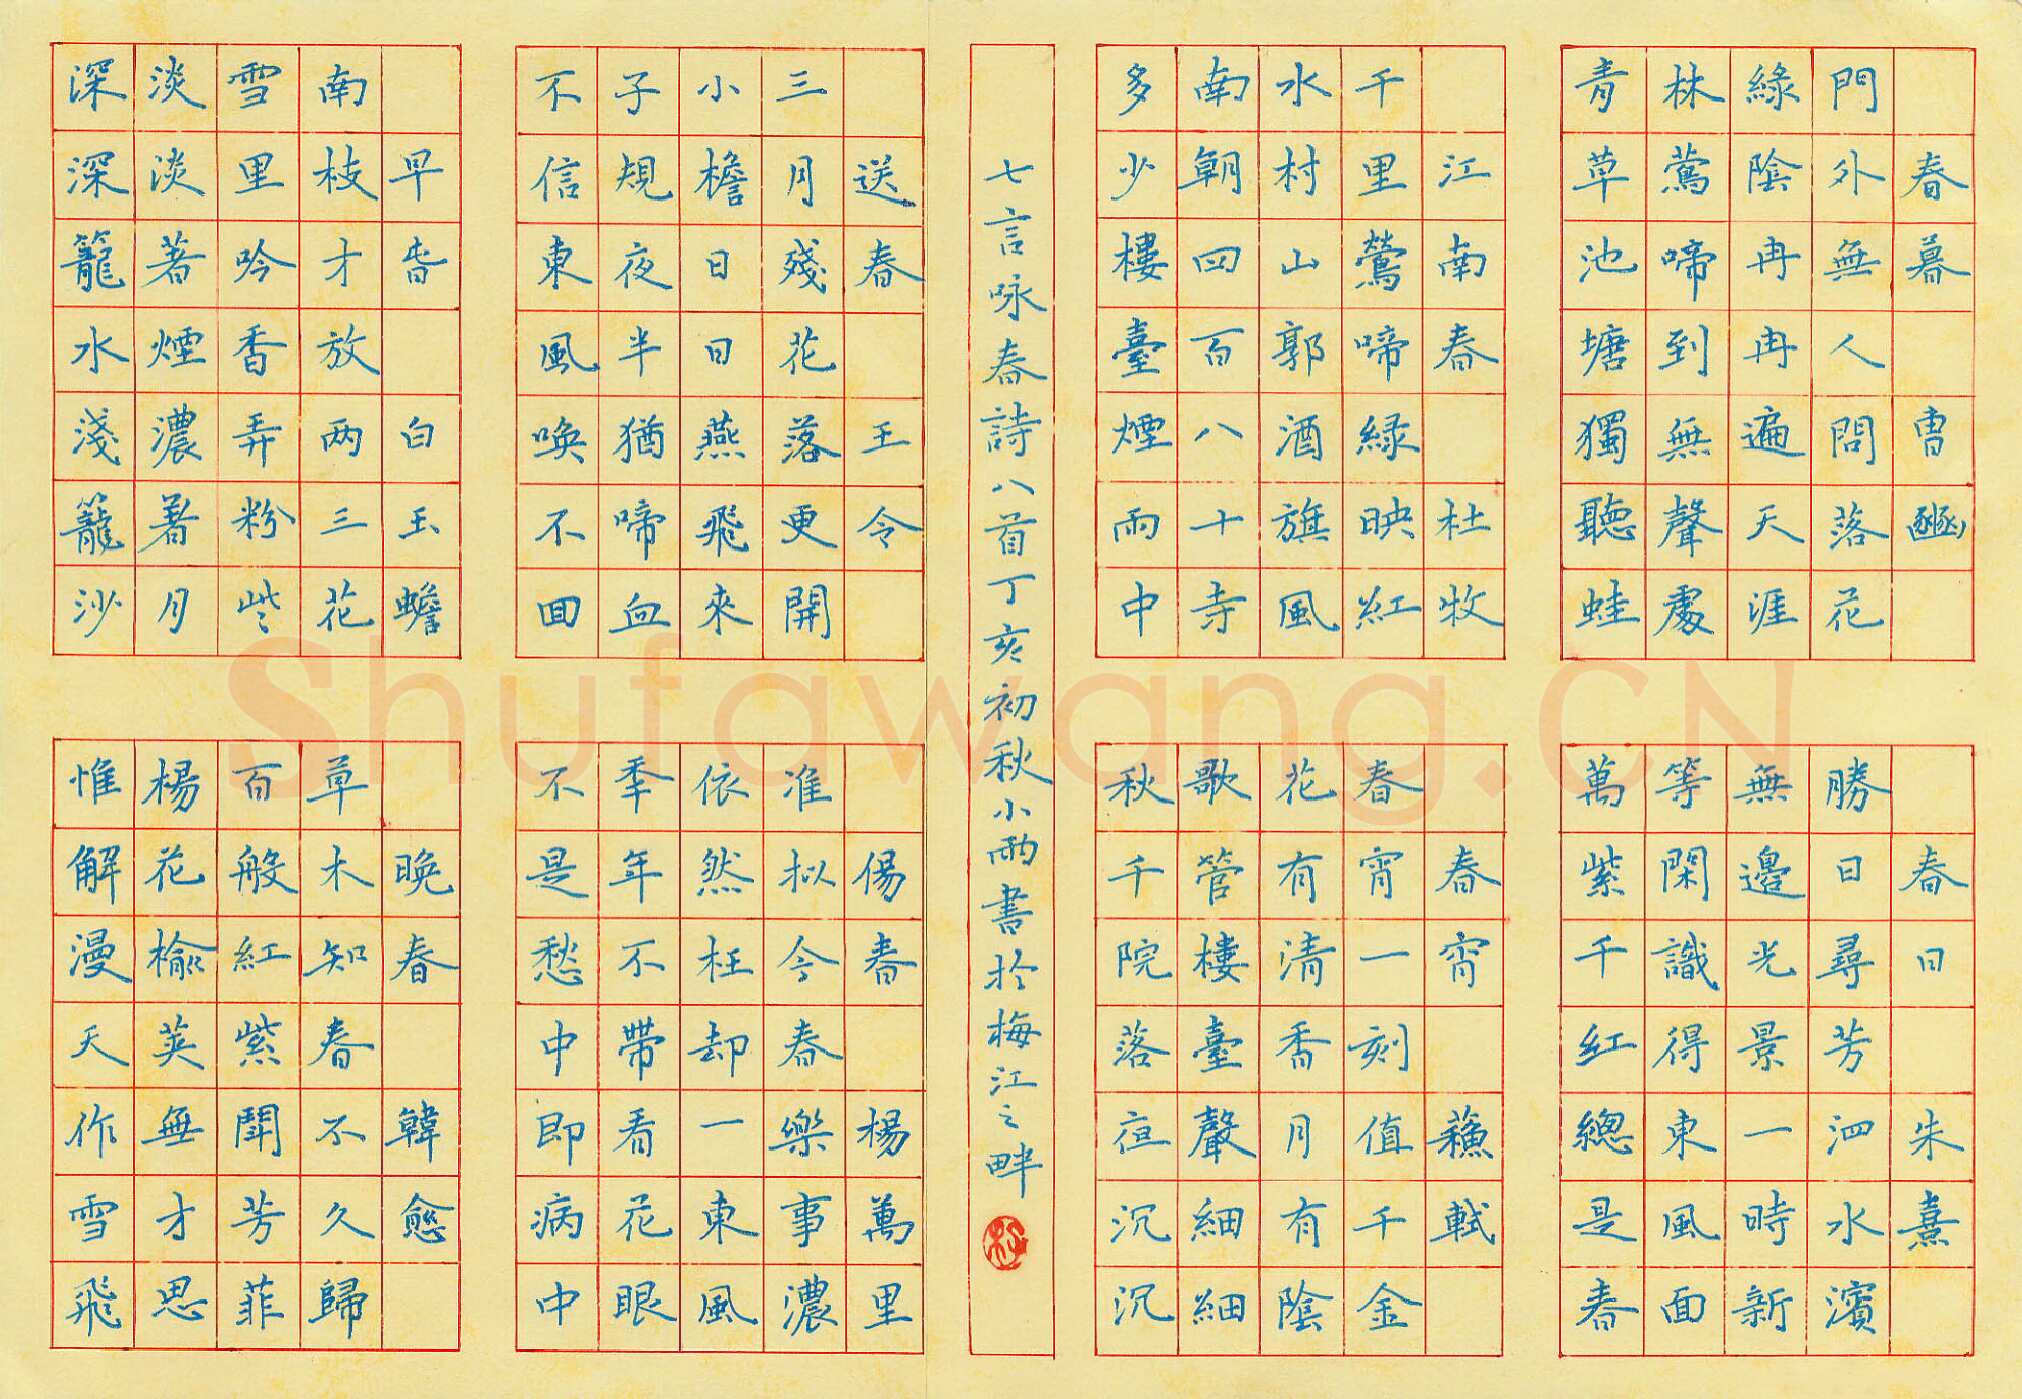 春暮 曹豳
門外無人問落花
綠陰冉冉遍天涯
林鶯啼到無聲處
青草池塘獨聽蛙
江南春 杜牧
千里鶯啼緑映紅
水村山郭酒旗風
南朝四百八十寺
多少樓臺煙雨中
春日 朱熹
勝日尋芳泗水濱
無邊光景一時新
等閑識得東風面
萬紫千紅總是春
春宵 蘓軾
春宵一刻值千金
花有清香月有陰
歌管樓臺聲細細
秋千院落夜沉沉
七言咏春詩八首丁亥初秋小雨書於梅江之畔
送春 王令
三月殘花落更開
小檐日日燕飛來
子規夜半猶啼血
不信東風喚不囬
早春 白玉蟾
南枝才放两三花
雪里吟香弄粉些
淡淡著煙濃著月
深深籠水淺籠沙
傷春 楊萬里
准拟今春樂事濃
依然枉却一東風
秊年不帶看花眼
不是愁中即病中
晚春 韓愈
草木知春不久歸
百般紅紫鬥芳菲
楊花榆莢無才思
惟解漫天作雪飛
Shufawang.CN